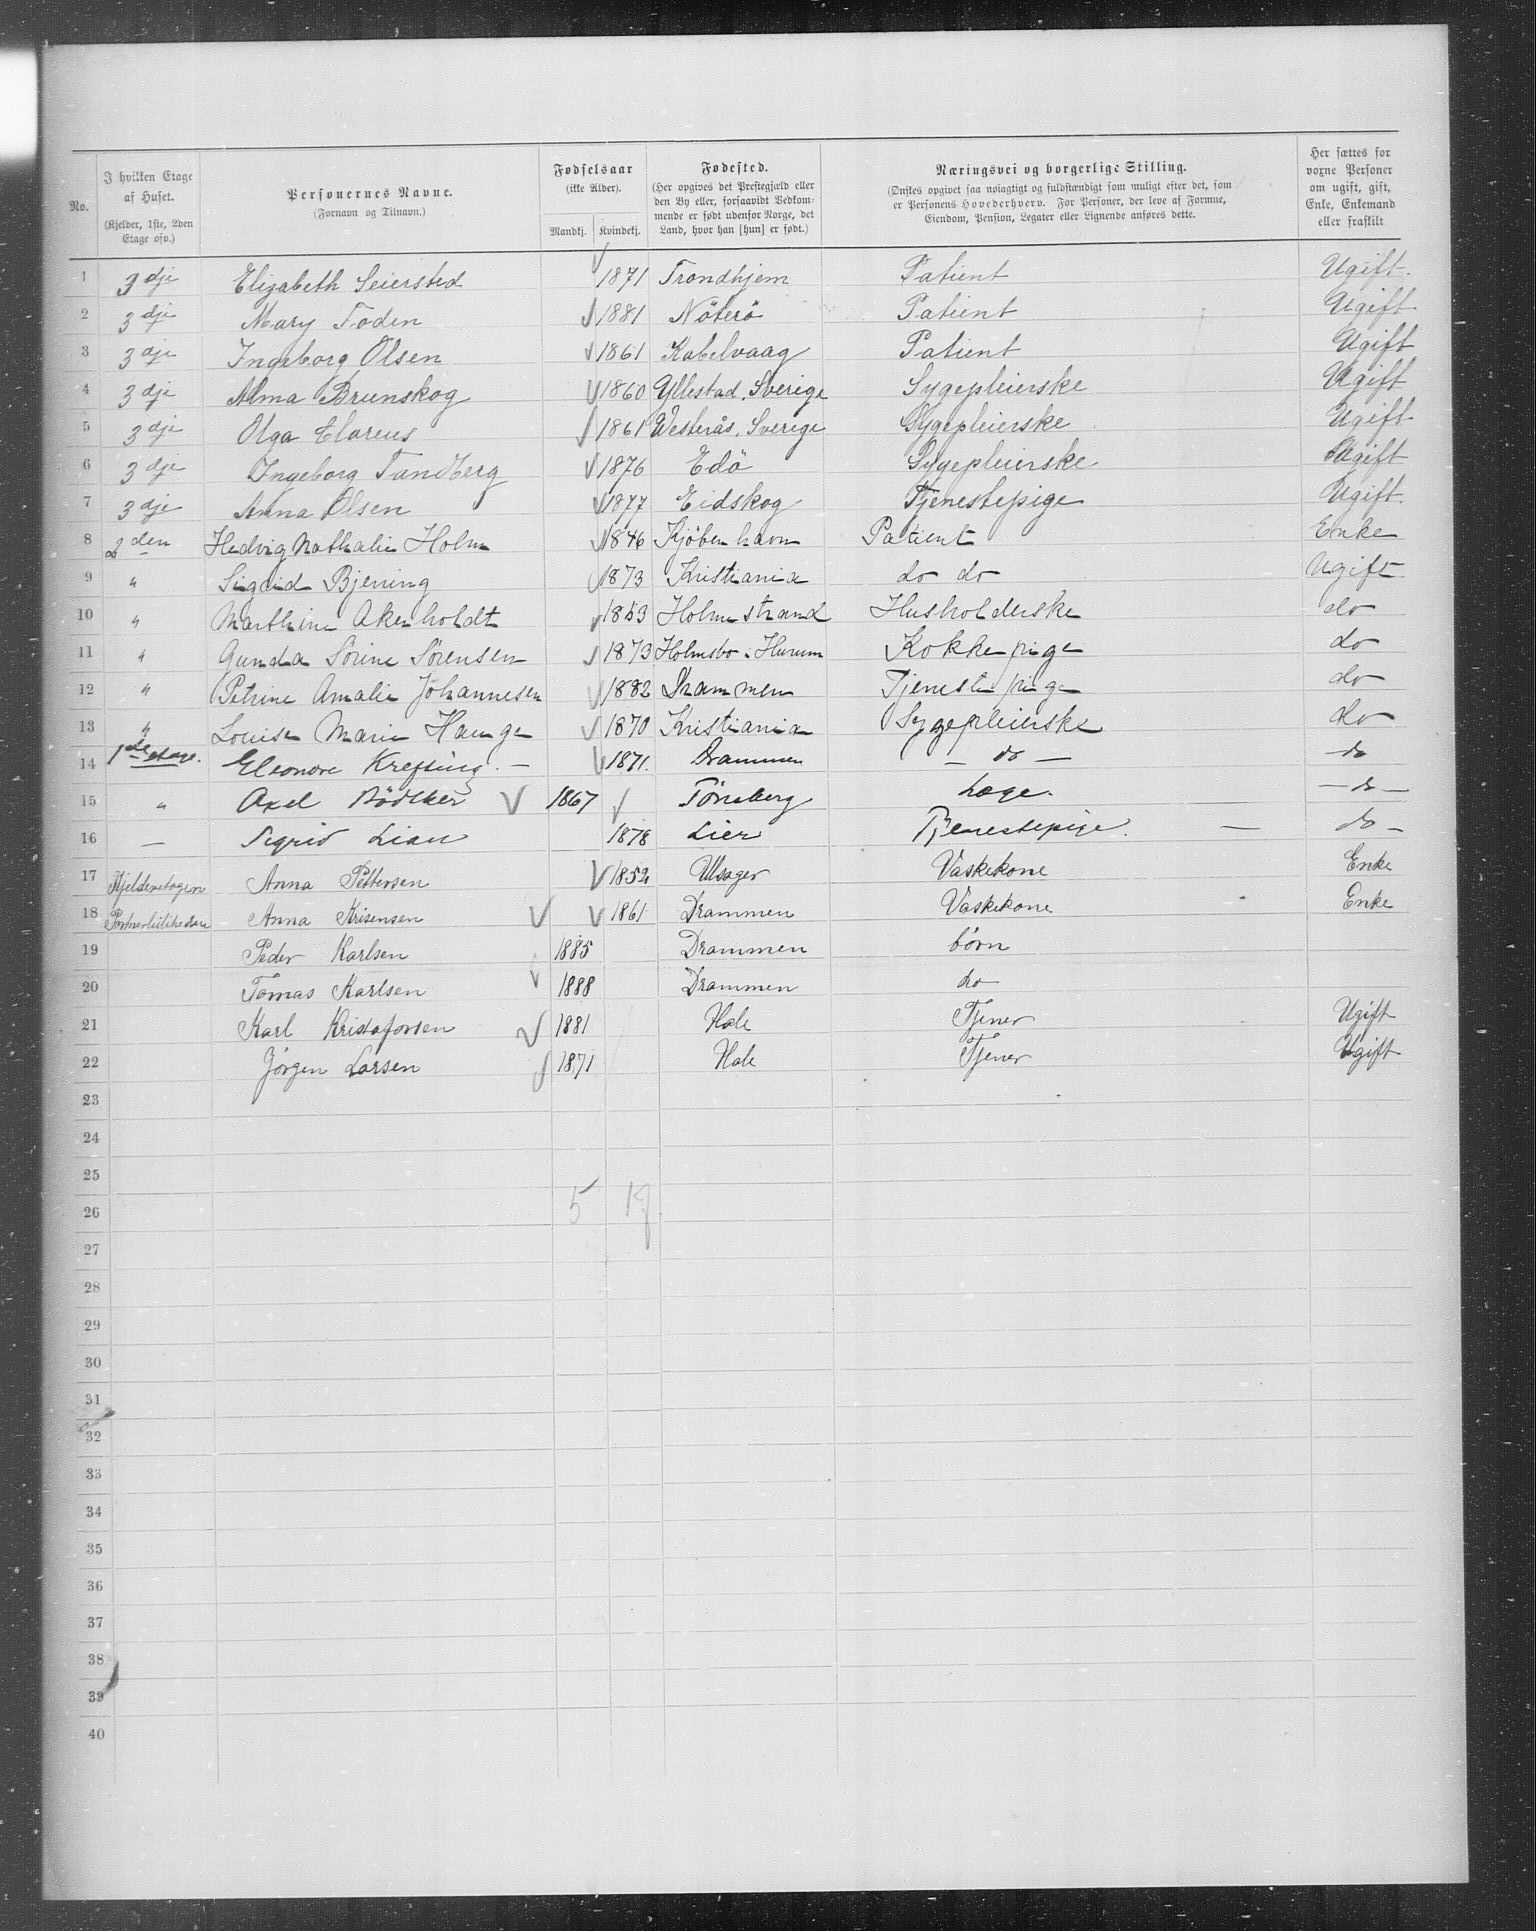 No. | I hvilken Etage af Huset. (Kjelder, 1ste, 2den Etage osv.) | Personernes Navne. (Fornavn og Tilnavn.) | Fødselsaar (ikke Alder). Mandkj. Kvindekj. | Fødested. (Her opgives det Prestegjæld eller den By eller, forsaavidt Vedkommende er født udenfor Norge, det Land, hvor han [hun] er født.) | Næringsvei og borgerlige Stilling. (Ønskes opgivet saa nøiagtigt og fuldstændigt som muligt efter det, som er Personens Hovederhverv. For Personer, der leve af Formue, Eiendom, Pension, Legater eller Lignende anføres dette. | Her sættes for vorne Personer om ugift, gift, Enke, Enkemand eller fraskilt
1 3dje Elizabeth Seiersted 1871 Trondhjem Patient Ugift.
2 3dje Mary Foden 1881 Nöterö Patient Ugift
3 3dje Ingeborg Olsen 1861 Kabelvaag Patient Ugift
4 3dje Alma Brunskog 1860 Yllestad, Sverige Sygepleierske Ugift
5 3dje Olga Clareus 1861 Westerås, Sverige Sygepleierske Ugift
6 3dje Ingeborg Tandberg 1876 Edö Sygepleierske Ugift
7 3dje Anna Olsen 1877 Eidskog Tjenestepige Ugift
8 2den Hedvig Nathalie Holm 1846 Kjöbenhavn Patient Enke
9 " Sigrid Bjening 1873 Kristiania do do Ugift
10 " Marthine Akerholdt 1853 Holmestrand Husholderske do
11 " Gunda Sörine Sörensen 1873 Holmsbo i Hurum Kokkepige do
12 " Petrine Amalie Johannesen 1882 Drammen Tjenestepige do
13 " Louise Marie Hauge 1870 Kristiania Sygepleierske do
14 1ste etage. Eleonore Krefting. — 1871. Drammen — do — — do
15 " Axel Bödtker 1867 Tönsberg Læge. — do —
16 — Sigrid Lian 1878 Lier Tjenestepige. — do —
17 Kjelderetagen Anna Pettersen 1852 Ulsager Vaskekone Enke
18 Anna Krisensen 1861 Drammen Vaskekone Enke
19 Peder Karlsen 1885 Drammen börn
20 Tomas Karlsen 1888 Drammen do
21 Karl Kristoforsen 1881 Hole Tjener Ugift
22 Jörgen Larsen 1871 Hole Tjener Ugift
23
24
25
26 5 17
27
28
29
30
31
32
33
34
35
36
37
38
39
40